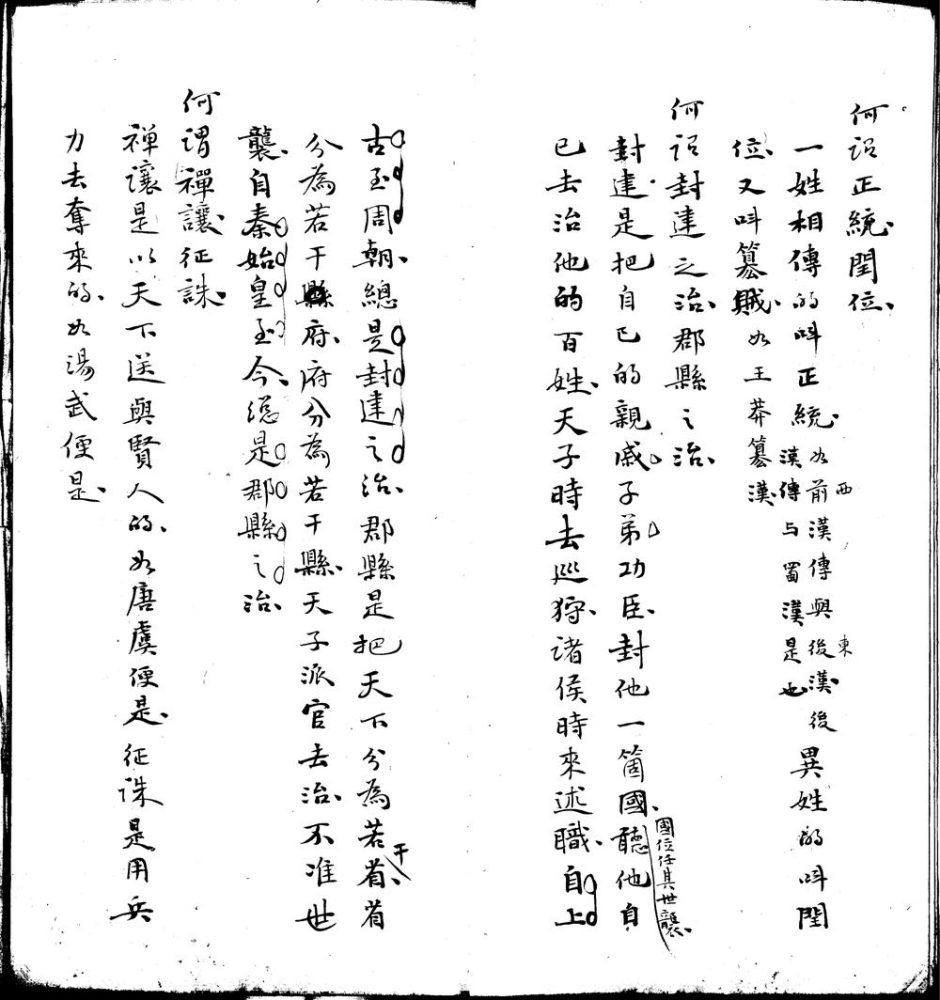 何謂正統閏位
一姓相傳的呌正統如前漢傳與後漢後
西
東
漢傳与蜀漢是也
異姓的呌閏
位又呌篡賊如王莽篡漢
何謂封建之治郡縣之治
封建是把自已的親戚子弟功臣封他一箇國聽他自
國位任其世襲
已去治他的百姓天子時去巡狩諸侯時來述職自上
古至周朝總是封建之治郡縣是把天下分為若省省
干
分為若干縣府府分為若干縣天子派官去治不准世
襲自秦始皇至今總是郡縣之治
何謂禪讓征誅
禅讓是以天下送與賢人的如唐虞便是征誅是用兵
力去奪來的如湯武便是